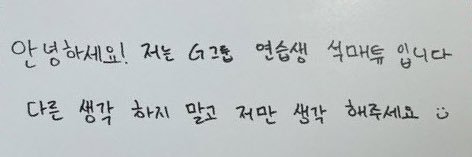 안녕하세요! 저는 G그룹 연습생 석매튜 입니다
다른 생각 하지 말고 저만 생각 해주세요 ☺